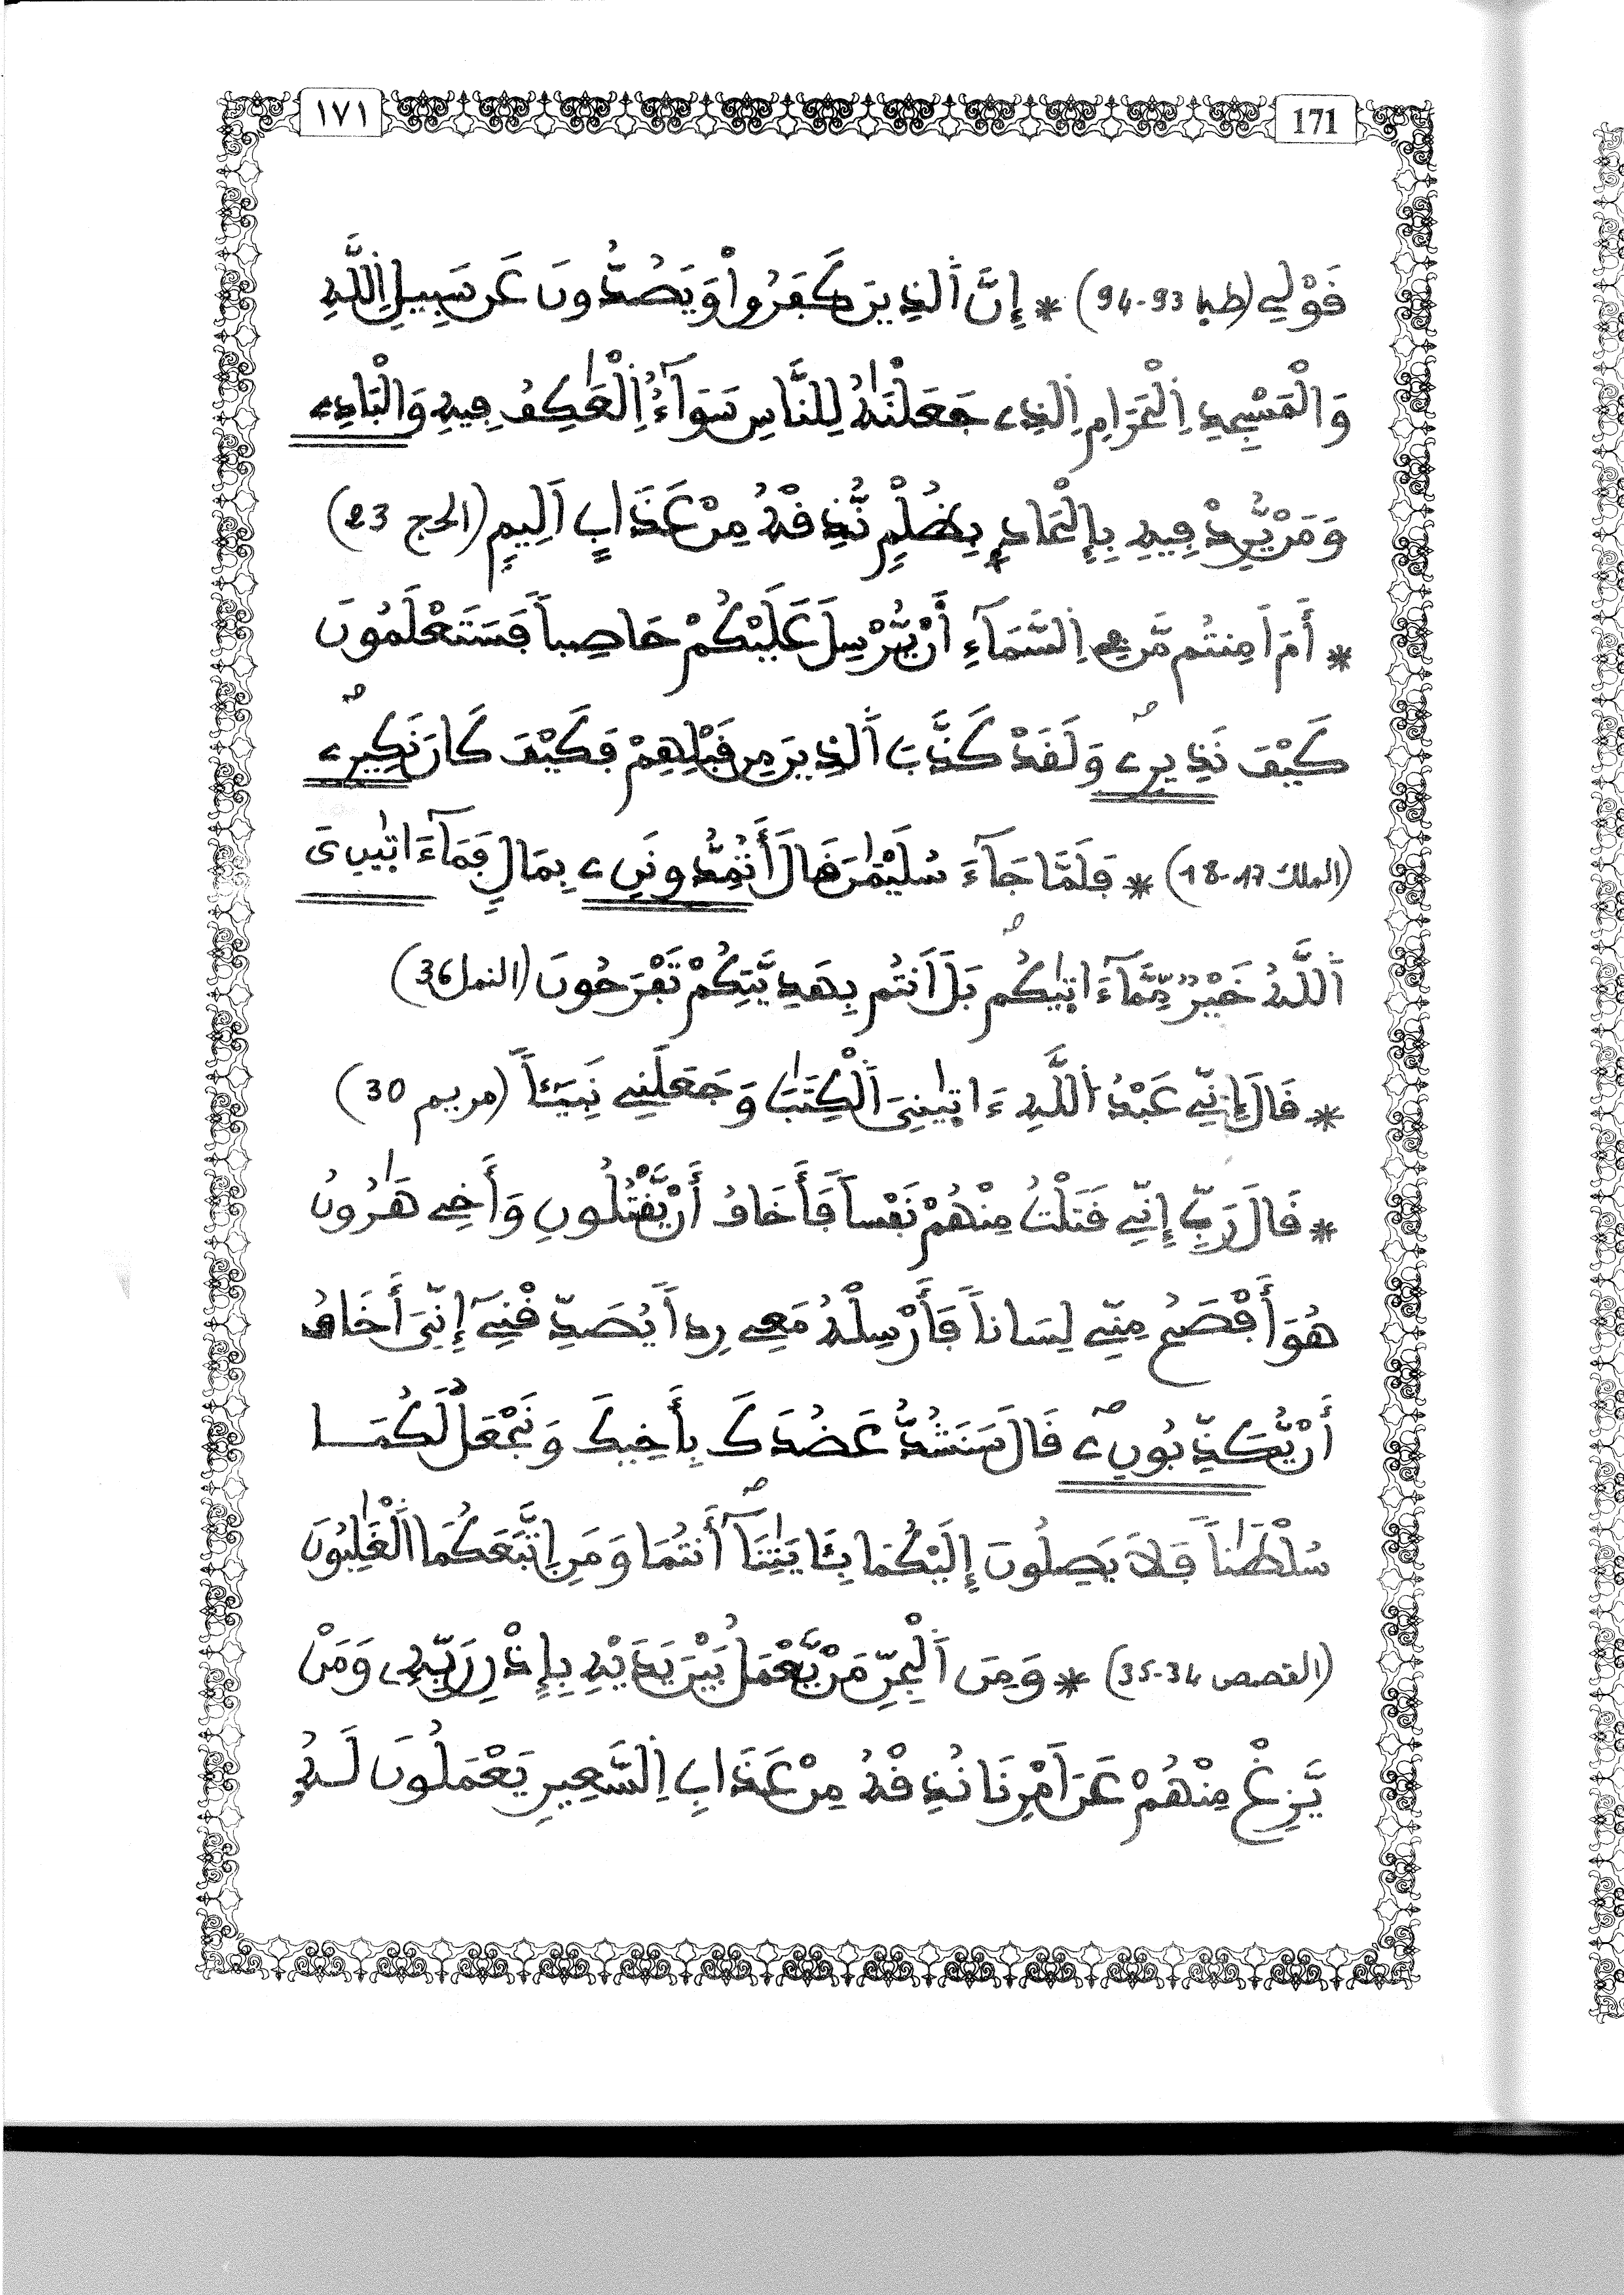 ١٧١ 171
قَوْلِے (طه 93-94) * إِنَّ اَ۬لذِينَ كَفَرُواْ وَيَصُدُّونَ عَن سَبِيلِ اِ۬للَّهِ
وَالْمَسْجِدِ اِ۬لْحَرَامِ اِ۬لذِے جَعَلْنَٰهُ لِلنَّاسِ سَوَآءٌ اِ۬لْعَٰكِفُ فِيهِ وَالْبَادِۦ
وَمَنْ يُّرِدْ فِيهِ بِإِلْحَادٍۢ بِظُلْمٍ نُّذِقْهُ مِنْ عَذَابٍ اَلِيمٍ (الحج 23)
* أَمَ اَمِنتُم مَّن فِے اِ۬لسَّمَآءِ أَنْ يُّرْسِلَ عَلَيْكُمْ حَاصِباً فَسَتَعْلَمُونَ
كَيْفَ نَذِيرِۦ وَلَقَدْ كَذَّبَ اَ۬لذِينَ مِن قَبْلِهِمْ فَكَيْفَ كَانَ نَكِيرِۦ
(الملك 17-18) * فَلَمَّا جَآءَ سُلَيْمَٰنَ قَالَ أَتُمِدُّونَنِۦ بِمَالٍ فَمَآ ءَاتٰۭينِۦَ
اَ۬للَّهُ خَيْرٌ مِّمَّآ ءَاتٰۭيكُم بَلَ اَنتُم بِهَدِيَّتِكُمْ تَفْرَحُونَ (النمل 36)
* قَالَ إِنِّے عَبْدُ اُ۬للَّهِ ءَاتٰۭينِيَ اَ۬لْكِتَٰبَ وَجَعَلَنِے نَبِيـٓـٔاً (مريم 30)
* قَالَ رَبِّ إِنِّے قَتَلْتُ مِنْهُمْ نَفْساً فَأَخَافُ أَنْ يَّقْتُلُونِ وَأَخِے هَٰرُونُ
هُوَ أَفْصَحُ مِنِّے لِسَاناً فَأَرْسِلْهُ مَعِے رِداً يُصَدِّقْنِےٓ إِنِّيَ أَخَافُ
أَنْ يُّكَذِّبُونِۦ قَالَ سَنَشُدُّ عَضُدَكَ بِأَخِيكَ وَنَجْعَلُ لَكُمَا
سُلْطَٰناً فَلَا يَصِلُونَ إِلَيْكُمَا بِـَٔايَٰتِنَآ أَنتُمَا وَمَنِ اِ۪تَّبَعَكُمَا اَ۬لْغَٰلِبُونَ
(القصص 34-35) * وَمِنَ اَ۬لْجِنِّ مَنْ يَّعْمَلُ بَيْنَ يَدَيْهِ بِإِذْنِ رَبِّهِۦ وَمَنْ
يَّزِغْ مِنْهُمْ عَنَ اَمْرِنَا نُذِقْهُ مِنْ عَذَابِ اِ۬لسَّعِيرِ يَعْمَلُونَ لَهُۥ